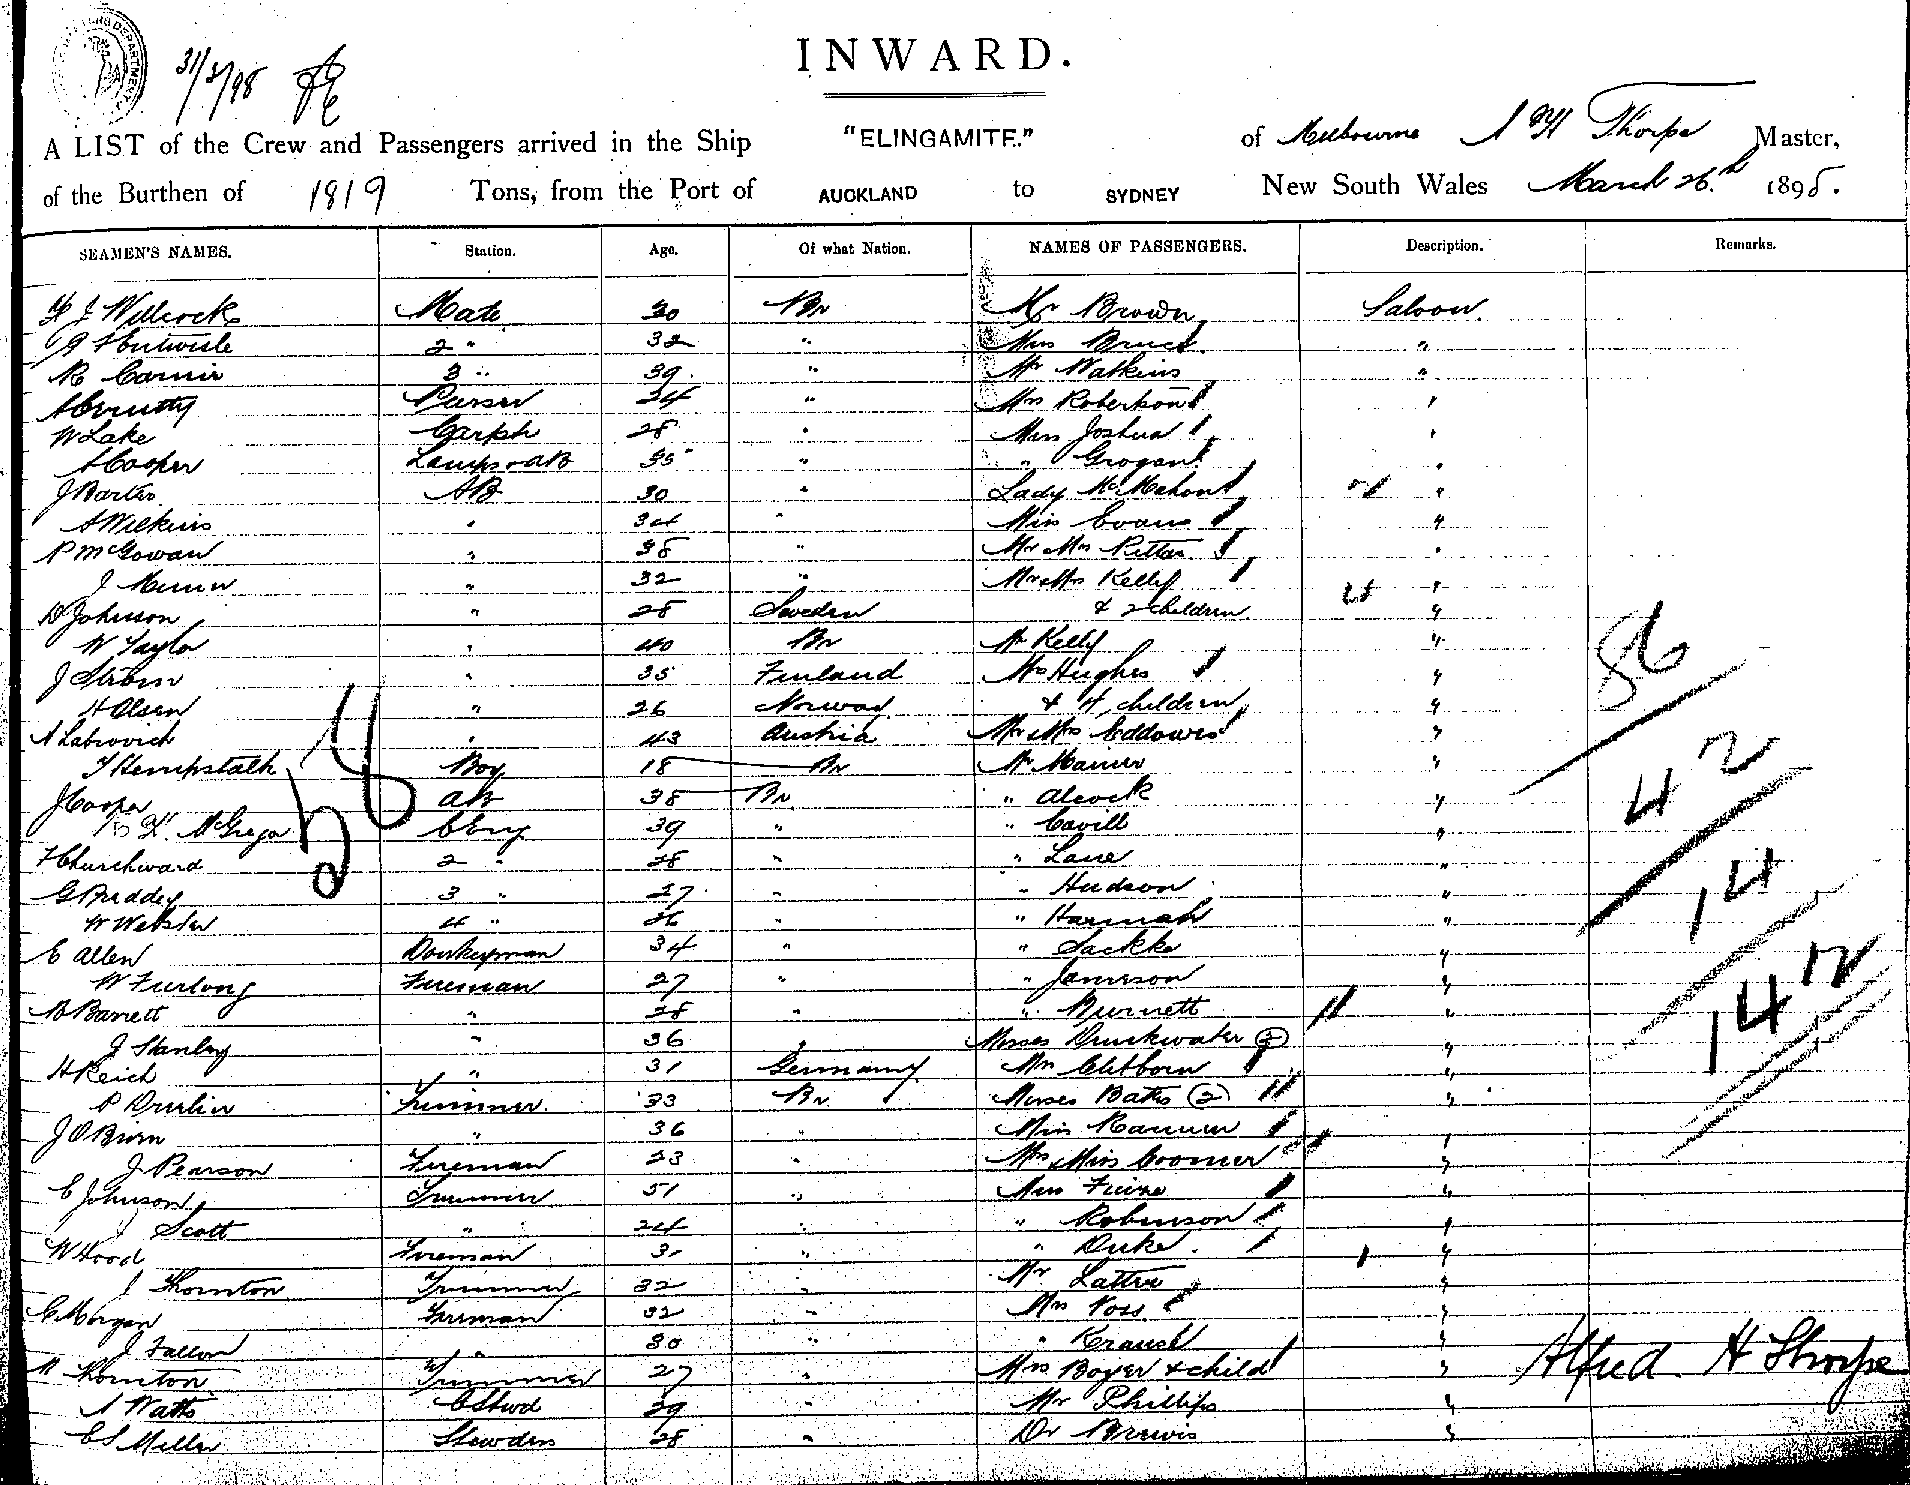 31/3/98
INWARD.
A LIST of the Crew and Passengers arrived in the Ship "ELINGAMITE." of Melbourne A H Thorpe Master,
of the Burthen of 1819 Tons, from the Port of AUCKLAND to SYDNEY New South Wales March 26th 1898.
SEAMEN'S NAMES. Station. Age. Of what Nation. NAMES OF PASSENGERS. Description. Remarks.
J Willcocks Mate 30 Br Mr Brown Saloon
2 " 32 " Bruce "
3 " 39 " Mr Watkins "
Purser 24 " Mrs Robertson "
W Lake 28 " Miss Joshua "
A Cooper Lamps & AB 35 " " Grogan "
J Barter AB 30 " Lady McMahon "
A Wilkins " 34 " Miss Evans "
P McGowan " 38 " Mr Mrs "
J " 32 " Mr & Mrs Kelly "
Johnson " 28 Sweden & 2 children "
W Taylor " 40 Br Mr Kelly "
J Strom " 35 Finland Hughes "
H Olsen " 26 Norway & 4 children "
" 43 Austria Mr Mrs Eddowes "
T Hempstalk Boy 18 Br Mr "
J Cooper AB 38 Br " Alcock "
McGregor C Eng 39 " " Cavill "
Churchward 2 " 28 " " Lane "
G Preddey 3 " 27 " " Hudson "
W Webster 4 " 26 " " Hannah "
E Allen Donkeyman 34 " " "
W Furlong Fireman 27 " " Jamieson "
Barrett " 28 " " Burnett "
J Stanley " 36 " Misses Drinkwater 2 "
H Reich " 31 Germany Mrs Clibborn "
P Trimmer 33 Br Misses Bates 2 "
J O Brien " 36 " Miss "
J Pearson Fireman 23 " Mrs Miss "
C Johnson Trimmer 51 " "
J Scott " 24 " " Robinson "
W Hood Fireman 31 " " Duke "
J Thornton Trimmer 32 " Mr "
C Morgan Fireman 32 " Mrs Voss "
J Fallon " 30 " " "
Thornton Trimmer 27 " Mrs Boyer & child "
A Watts C Stwd 29 " Mr Phillips "
Miller 28 " Dr Brewis "
86
42
14
142
58
Alfred H Thorpe